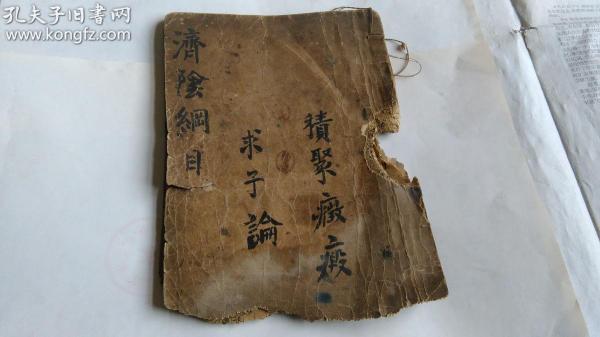 孔夫子旧书网
www.kongfz.com
積聚癥瘕
求子論
濟陰綱目